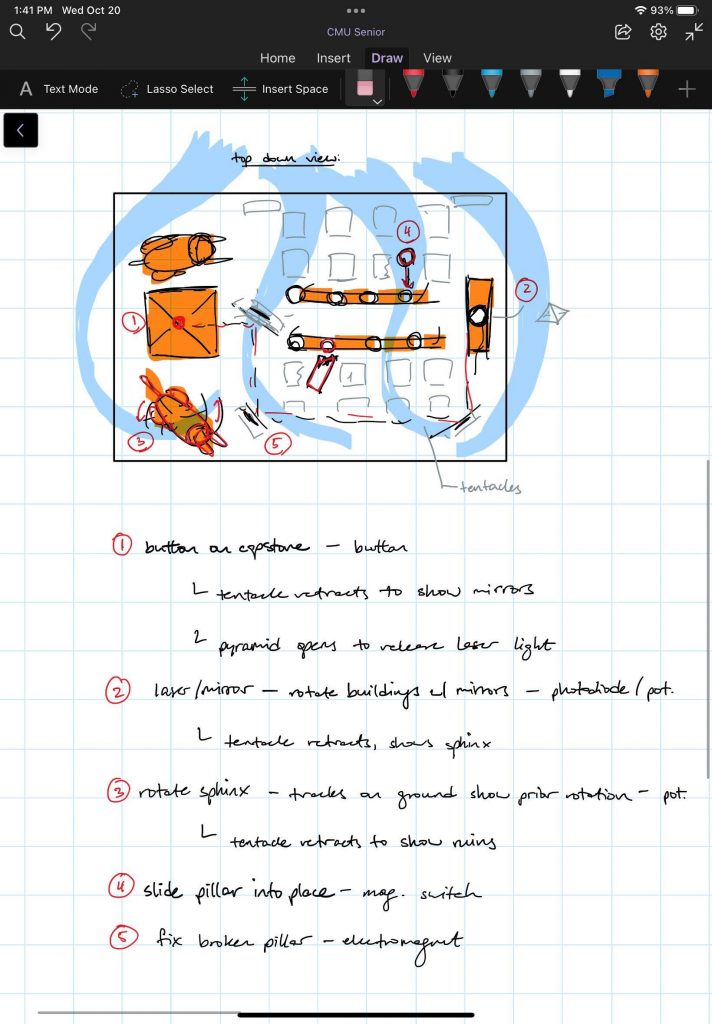 1:41 PM Wed Oct 20
93%
CMU Senior
Home Insert Draw View
A Text Mode Lasso Select Insert Space
top down view:
4
2
1
3
5
tentacles
1 button on capstone – button
tentacle retracts to show mirrors
pyramid opens to release laser light
2 laser/mirror – rotate buildings w/ mirrors – photodiode / pot.
tentacle retracts, shows sphinx
3 rotate sphinx – tracks on ground show prior rotation – pot.
tentacle retracts to show ruins
4 slide pillar into place – mag. switch
5 fix broken pillar – electromagnet